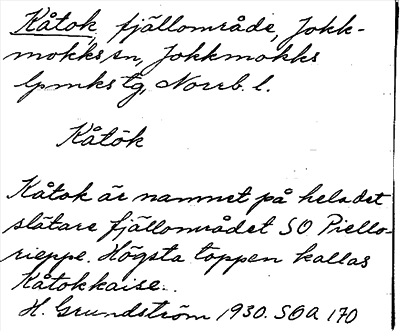 Kåtok, fjällområde, Jokk-
mokks sn, Jokkmokks
lpmks tg, Norrb. l.
Kåtok
Kåtok är namnet på hela det
slätare fjällområdet SO Piello-
rieppe. Högsta toppen kallas
Kåtokkaise.
H. Grundström 1930. SOA 170